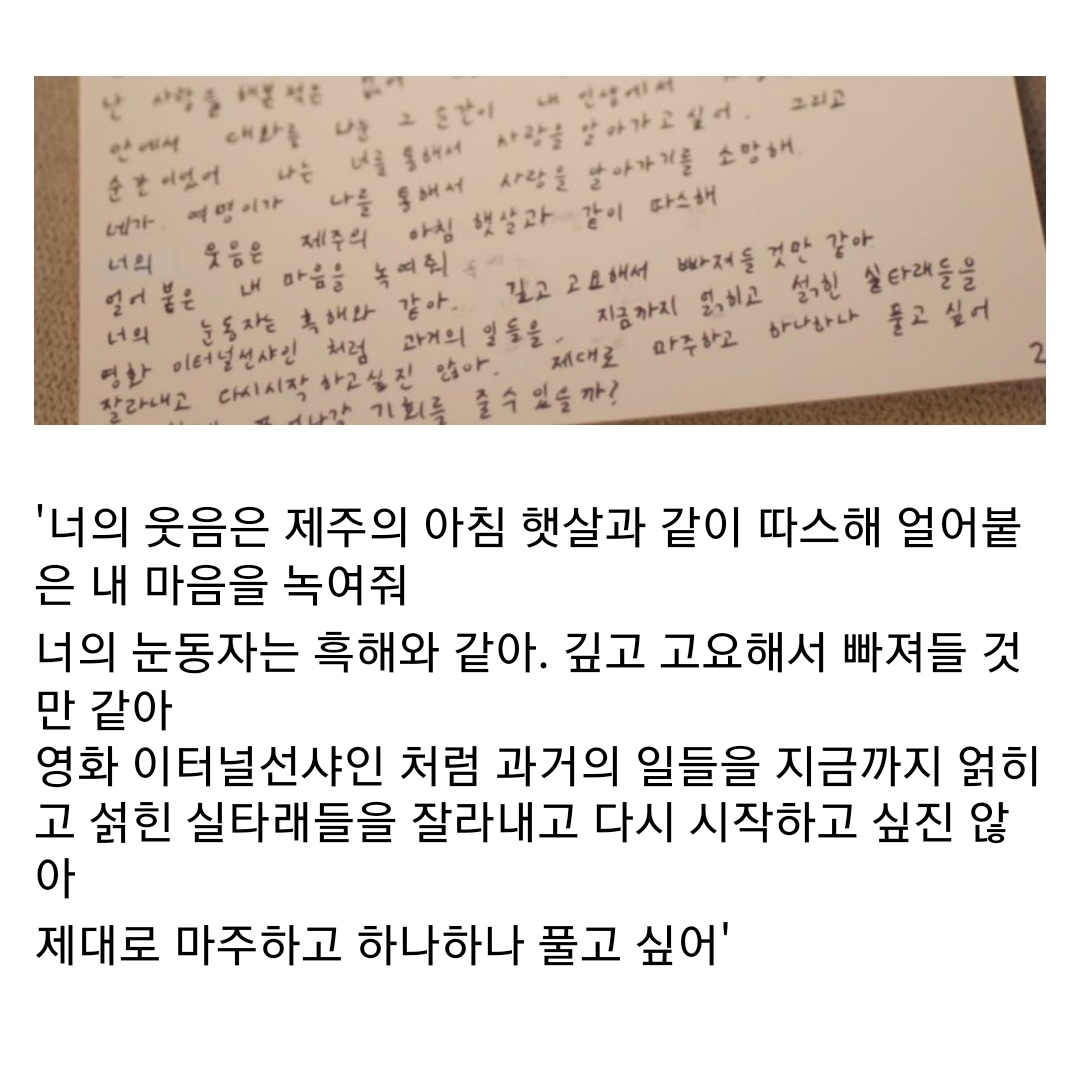 난 사랑을 해본적은 없어
안에서 대화를 나눈 그 순간이 내 인생에서
순간이었어 나는 너를 통해서 사랑을 알아가고싶어. 그리고
네가 여명이가 나를 통해서 사랑을 알아가기를 소망해.
너의 웃음은 제주의 아침 햇살과 같이 따스해
얼어붙은 내 마음을 녹여줘
너의 눈동자는 흑해와 같아. 깊고 고요해서 빠져들 것만 같아
영화 이터널선샤인 처럼 과거의 일들을. 지금까지 얽히고 섥힌 실타래들을
잘라내고 다시시작 하고싶진 않아. 제대로 마주하고 하나하나 풀고 싶어
기회를 줄수 있을까?
2
'너의 웃음은 제주의 아침 햇살과 같이 따스해 얼어붙
은 내 마음을 녹여줘
너의 눈동자는 흑해와 같아. 깊고 고요해서 빠져들 것
만 같아
영화 이터널선샤인 처럼 과거의 일들을 지금까지 얽히
고 섥힌 실타래들을 잘라내고 다시 시작하고 싶진 않
아
제대로 마주하고 하나하나 풀고 싶어'